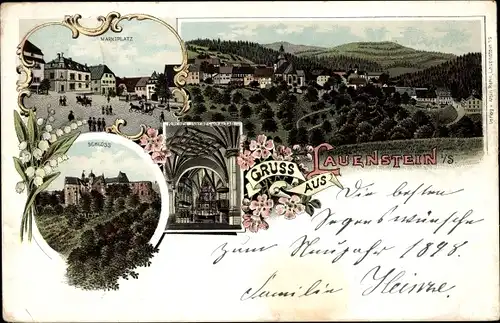 MARKTPLATZ
SCHLOSS
GRUSS
AUS
LAUENSTEIN i/S
Die besten
Segenswünsche
zum Neujahr 1898.
Familie Heinze.